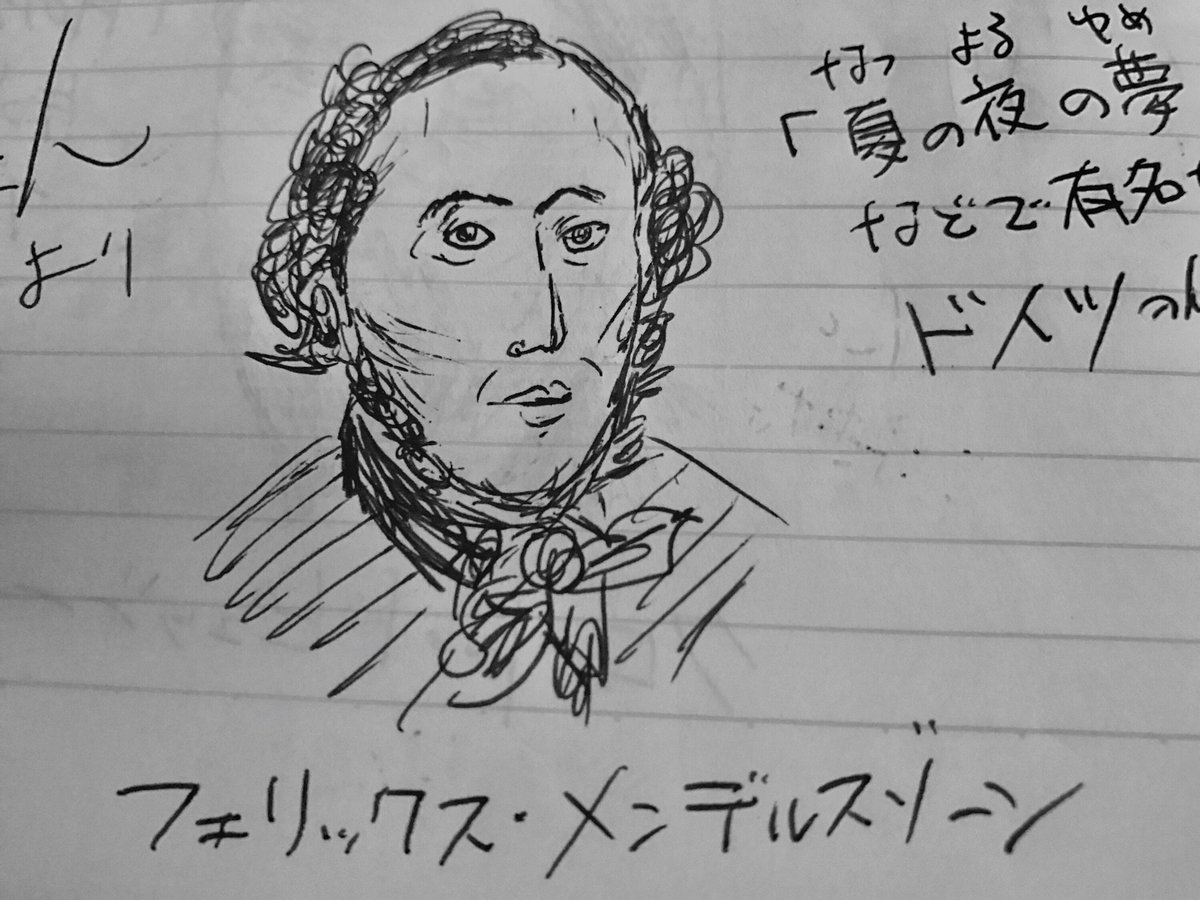 ん
より
なつ よる ゆめ
「夏の夜の夢
などで有名
ドイツの
フェリックス・メンデルスゾーン